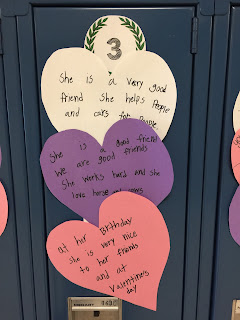 3
She is a very good
friend She helps People
and cars for People.
She is a good friend
we are good friends
She works hard and she
love horse
at her Birthday
She is very nice
to her friends
and at
Valentine's
day